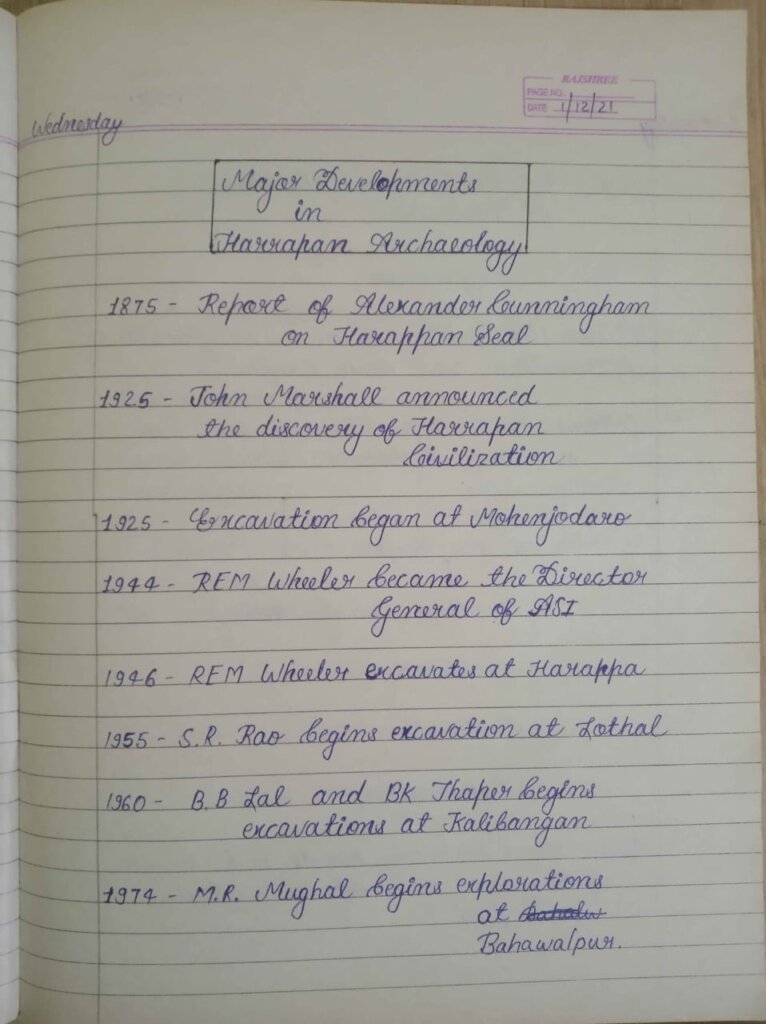 RAJSHREE
PAGE NO.
DATE 1/12/21
Wednesday
Major Developments
in
Harrapan Archaeology
1875 - Report of Alexander Cunningham
on Harappan Seal
1925 - John Marshall announced
the discovery of Harrapan
Civilization
1925 - Excavation began at Mohenjodaro
1944 - REM Wheeler became the Director
General of ASI
1946 - REM Wheeler excavates at Harappa
1955 - S.R. Rao begins excavation at Lothal
1960 - B.B Lal and BK Thaper begins
excavations at Kalibangan
1974 - M.R. Mughal begins explorations
at
Bahawalpur.